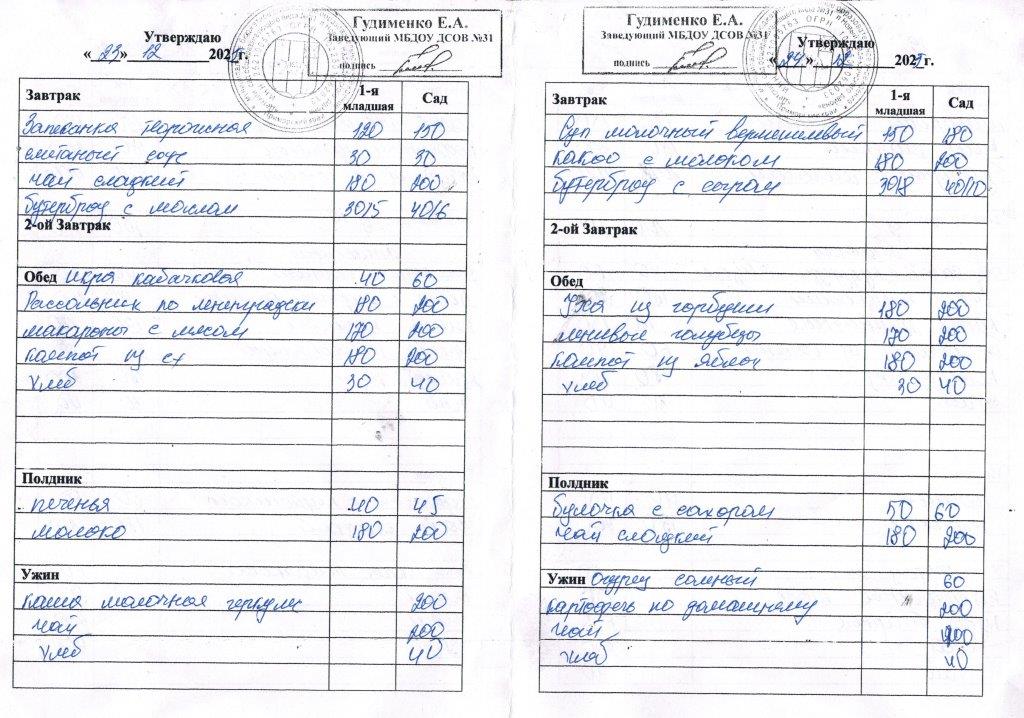 Гудименко Е.А.
Заведующий МБДОУ ДСОВ №31
подпись
Утверждаю
«23» 12 202 г.
Завтрак 1-я младшая Сад
Запеканка творожная 120 150
сметаный соус 30 30
чай сладкий 180 200
бутерброд с маслом 30/5 40/6
2-ой Завтрак
Обед икра кабачковая 40 60
Рассольник по ленинградски 180 200
макароны с мясом 170 200
компот из сх 180 200
хлеб 30 40
Полдник
печенья 40 45
молоко 180 200
Ужин
каша молочная геркулес 200
чай 200
хлеб 40
Гудименко Е.А.
Заведующий МБДОУ ДСОВ №31
подпись
Утверждаю
«24» 12 202 г.
Завтрак 1-я младшая Сад
Суп молочный вермишелевый 150 180
какао с молоком 180 200
бутерброд с сыром 30/8 40/10
2-ой Завтрак
Обед
Уха из горбуши 180 200
ленивые голубцы 170 200
компот из яблок 180 200
хлеб 30 40
Полдник
булочка с сахаром 50 60
чай сладкий 180 200
Ужин Огурец соленый 60
картофель по домашнему 200
чай 200
хлеб 40